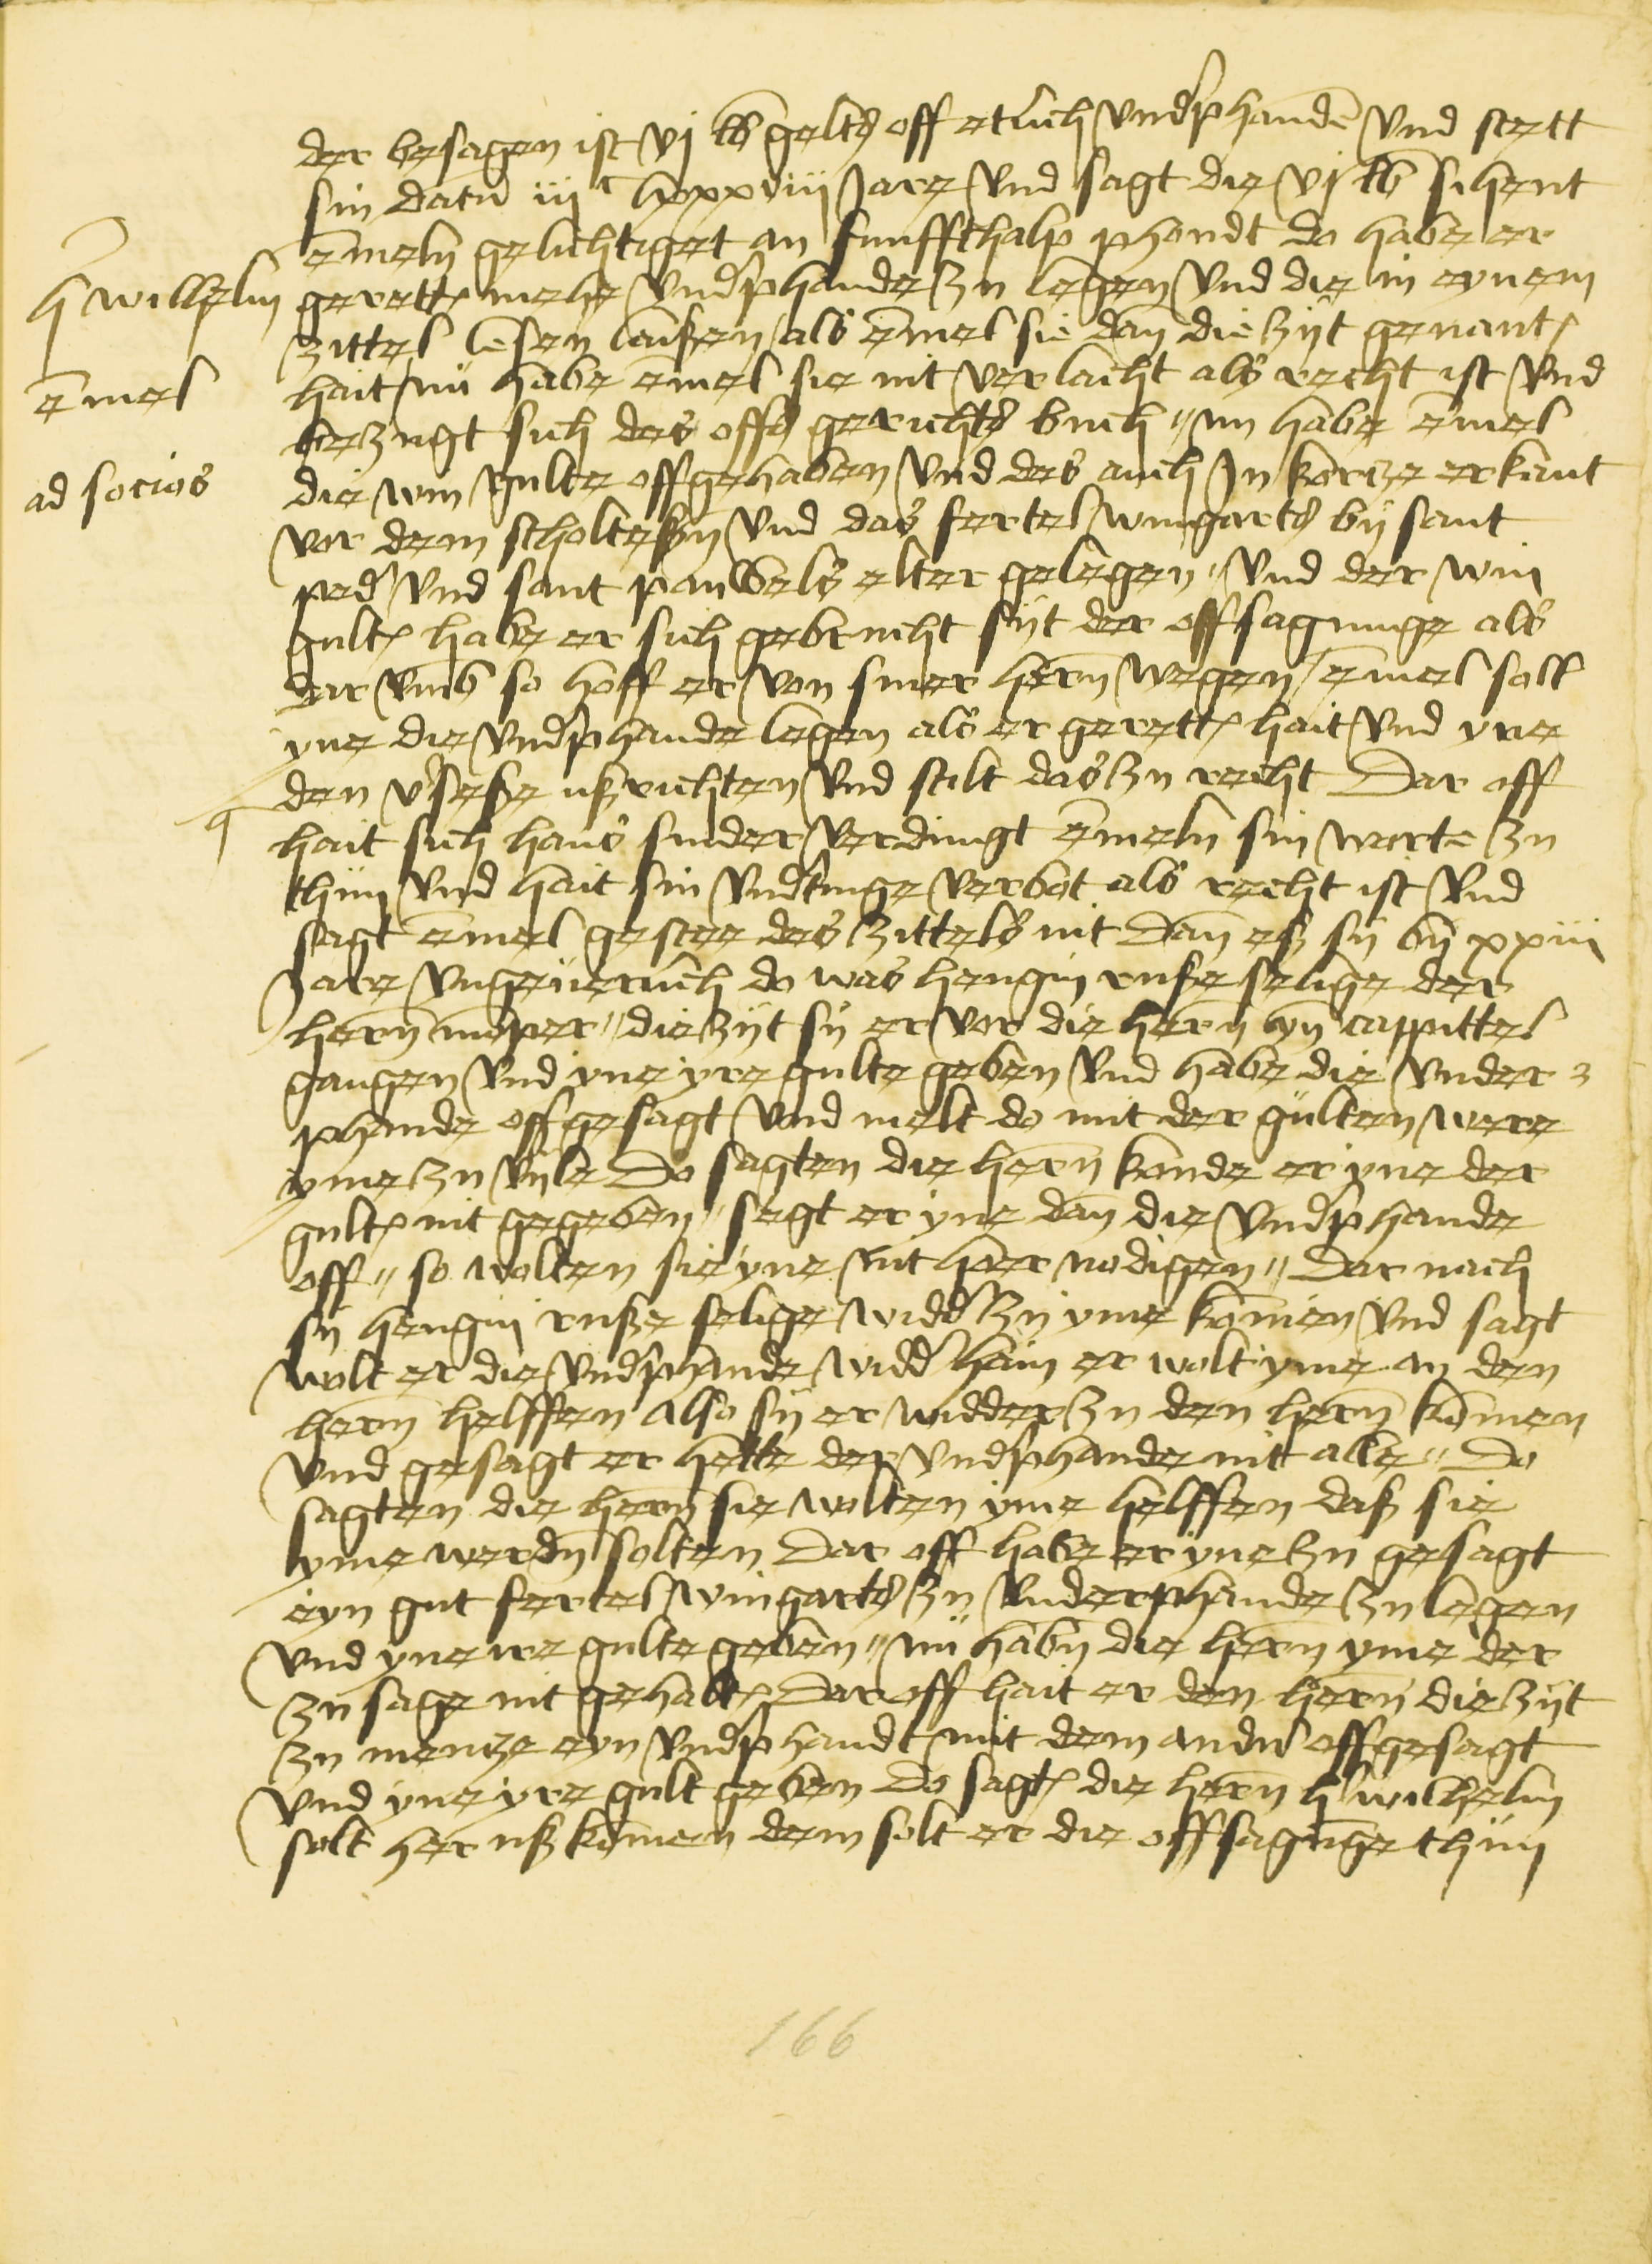 der besagen ist vj lb gelts off etlich vndphanden vnd stett
sin datu iijc lxxxviij Jare vnd sagt die vj lb sihent
emeln gelichtiget an funffthalp phondt do habe er
h wilhelm gerett mehe vndphande zu legen vnd die in eynem
zittel lesen laißen / als emel sie dan die zijt genant
emel hait / nu habe emel sie nit verlacht als recht ist vnd
bezugt sich des offs gerichts buch // nu habe emel
ad socios die win gulte offgehaben vnd des auch Jn kortze erkant
vor dem scholteßen vnd das fertel wingarts by sant
ped vnd sant pauwels elter gelegen // vnd der win
gult habe er sich gebrucht sijt der offsagunge als
dar vmb so hoff er von siner hern wegen / emel soll
yne die vndphande legen als er gerett hait vnd yne
den vseße ußrichten vnd stilt das zu recht Dar off
hait sich hans snider verdingt emeln sin worte zu
thun vnd hait sin vndtinge verbot als recht ist vnd
sagt emel gestee des zittels nit Dan eß sy by xxiij
Jare vngeuerlich do was hengin ruße selige der
hern momper // die zijt sy er vor die hern yn cappittel
gangen vnd yne yre gulte geben vnd habe die vnder
phande offgesagt vnd melt do mit der gulten were
yme zu vile Do sagten die hern konde er yne der
gult nit gegeben // sagt er yne dan die vndphande
off // so wolten sie yne nit hoer nodigen // Dar nach
sy hengin ruße selige widd zu yme komen vnd sagt
wolt er die vndphande widd hain er wolt yme an den
hern helffen also sy er widder zu den hern komen
vnd gesagt er hette der vndphande nit alle // Do
sagten die hern sie wolten yme helffen daß sie
yme werdn solten Dar off habe er yne zu gesagt
eyn gut fertel wingarts zu vnderphande zu legen
vnd yne ire gulte geben // nu habn die hern yme der
zu sage nit gehalt Dar off hait er den hern die zijt
zu mentze eyn vndphandt mit dem andn offgesagt
vnd yne yre gult geben Do sagt die hern h wilhelm
solt her uß komen dem solt er die offsagunge thun
166